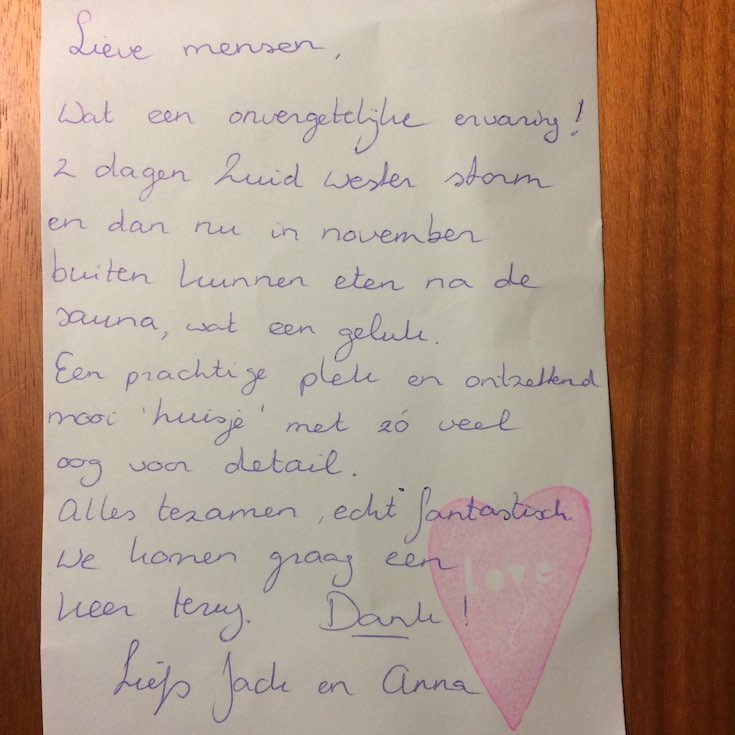 Lieve mensen,
Wat een onvergetelijke ervaring!
2 dagen Zuid wester storm
en dan nu in november
buiten kunnen eten na de
sauna, wat een geluk.
Een prachtige plek en ontzettend
mooi 'huisje' met zó veel
oog voor detail.
Alles tezamen, echt fantastisch
We komen graag een
keer terug. Dank!
Liefs Jack en Anna
Love